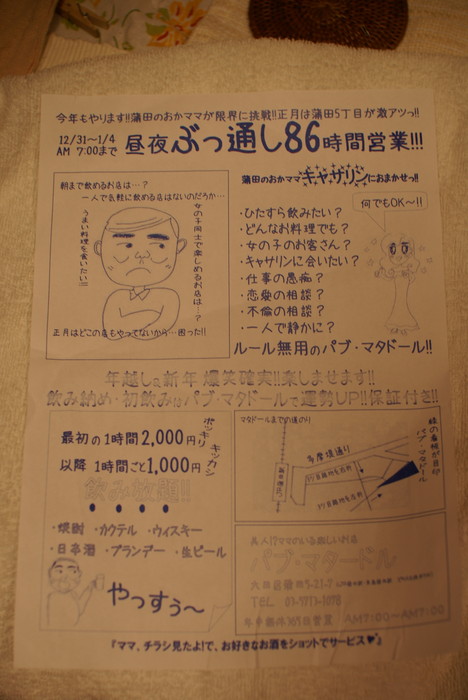 今年もやります!!蒲田のおかママが限界に挑戦!!正月は蒲田5丁目が激アツっ!!
12/31～1/4
AM 7:00まで
昼夜ぶっ通し86時間営業!!!
朝まで飲めるお店は…?
一人で気軽に飲める店はないのだろか…
うまい料理を食いたい!!!
女の子同士で楽しめるお店は…?
正月はどこの店もやってないから…困った!!
蒲田のおかママキャサリンにおまかせっ!!
・ひたすら飲みたい?
・どんなお料理でも?
・女の子のお客さん?
・キャサリンに会いたい?
・仕事の愚痴?
・恋愛の相談?
・不倫の相談?
・一人で静かに?
何でもOK～!!
ルール無用のパブ・マタドール!!
年越し&新年 爆笑確実!!楽しませます!!
飲み納め・初飲みはパブ・マタドールで運勢UP!!保証付き!!
最初の1時間2,000円
ポッキリ
以降 1時間ごと1,000円
キッカシ
飲み放題!!
・焼酎 ・カクテル ・ウィスキー
・日本酒 ・ブランデー ・生ビール
やっすぅ～
マタドールまでの道のり
多摩堤通り
パブ・マタドール
緑の看板が目印
美人!?ママのいる楽しいお店
パブ・マタドール
TEL
年中無休365日営業 AM7:00～AM7:00
『ママ、チラシ見たよ!で、お好きなお酒をショットでサービス♥』